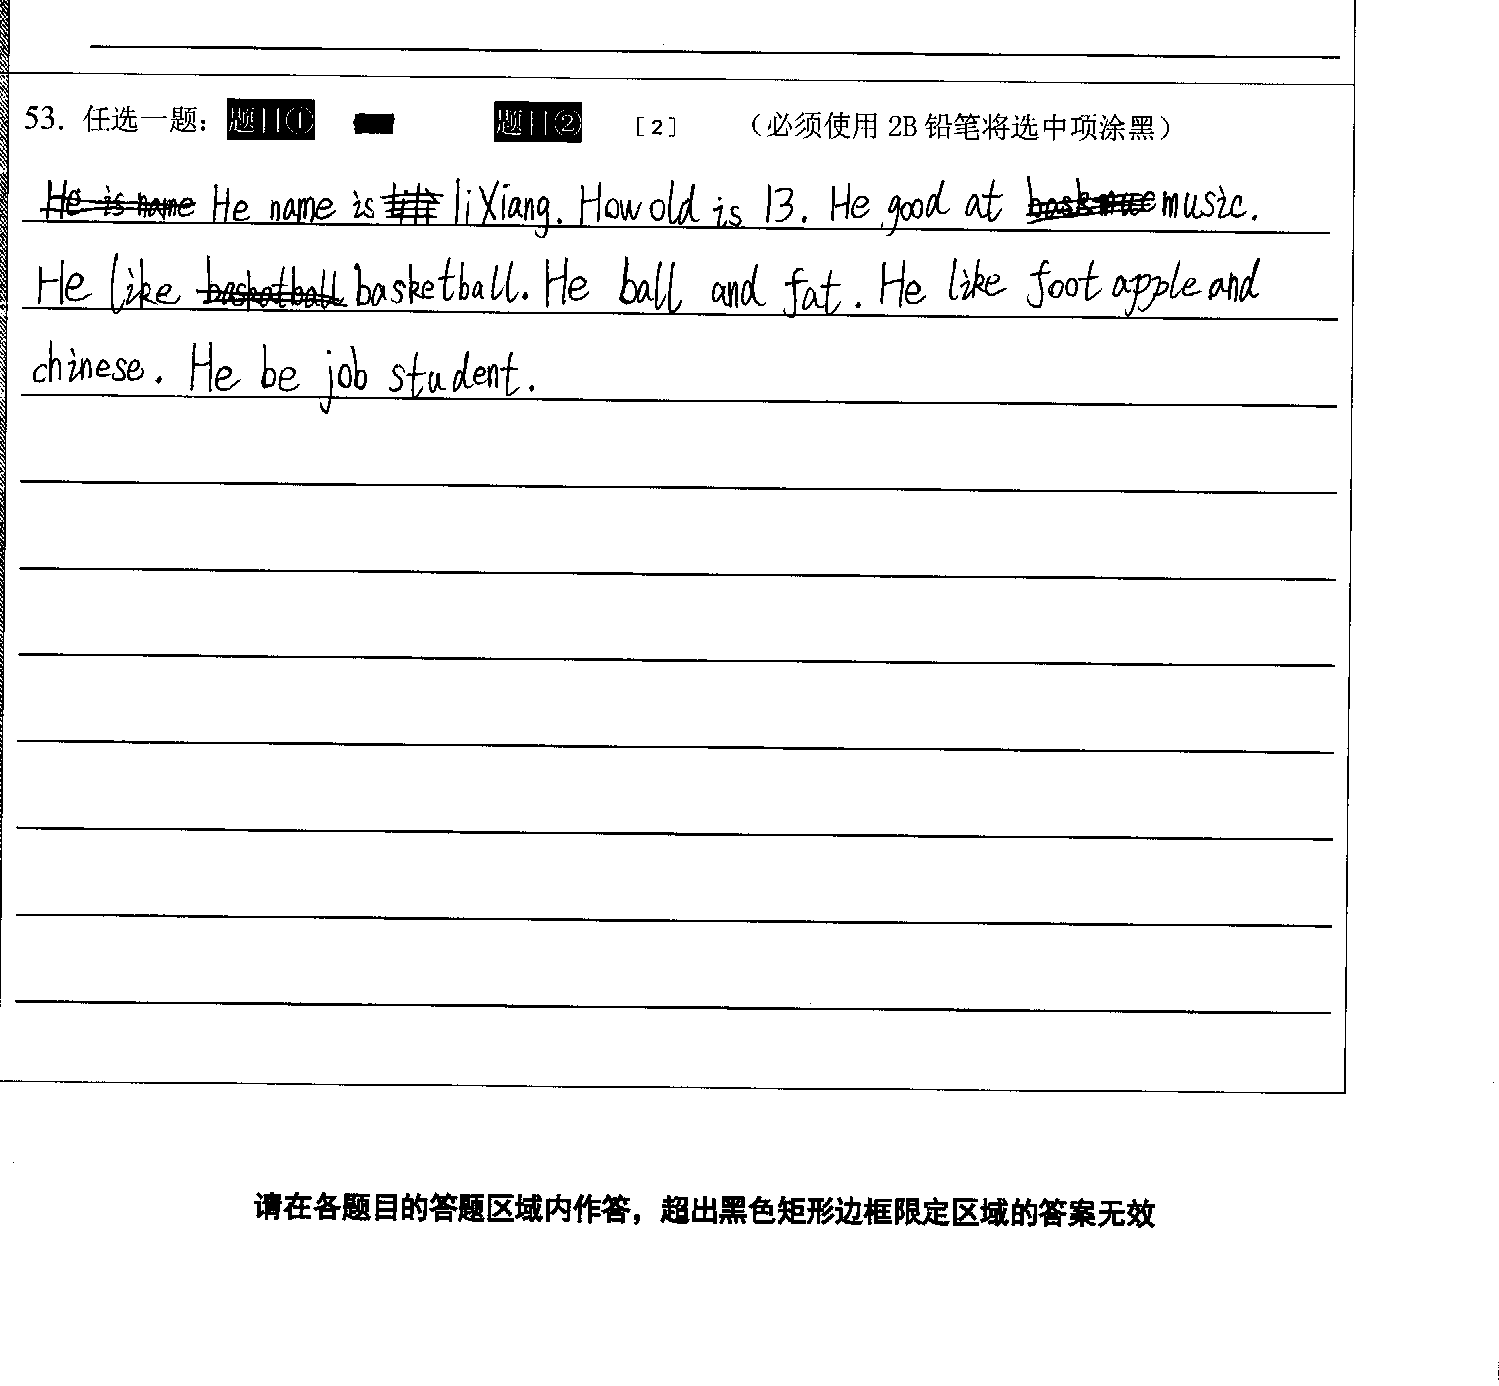 53. 任选一题： 题目① 题目② [2] （必须使用 2B 铅笔将选中项涂黑）
He is name He name is li Xiang. How old is 13. He good at music.
He like basketball basketball. He ball and fat. He like foot apple and
chinese. He be job student.
请在各题目的答题区域内作答，超出黑色矩形边框限定区域的答案无效